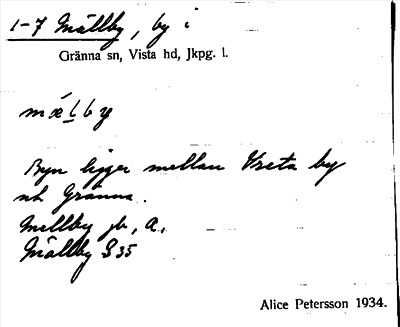 1-7 Mällby, by i
Gränna sn, Vista hd, Jkpg. l.
mælby
Byn ligger mellan Vreta by
och Gränna.
Mellby jb, A,
Mällby S 35
Alice Petersson 1934.